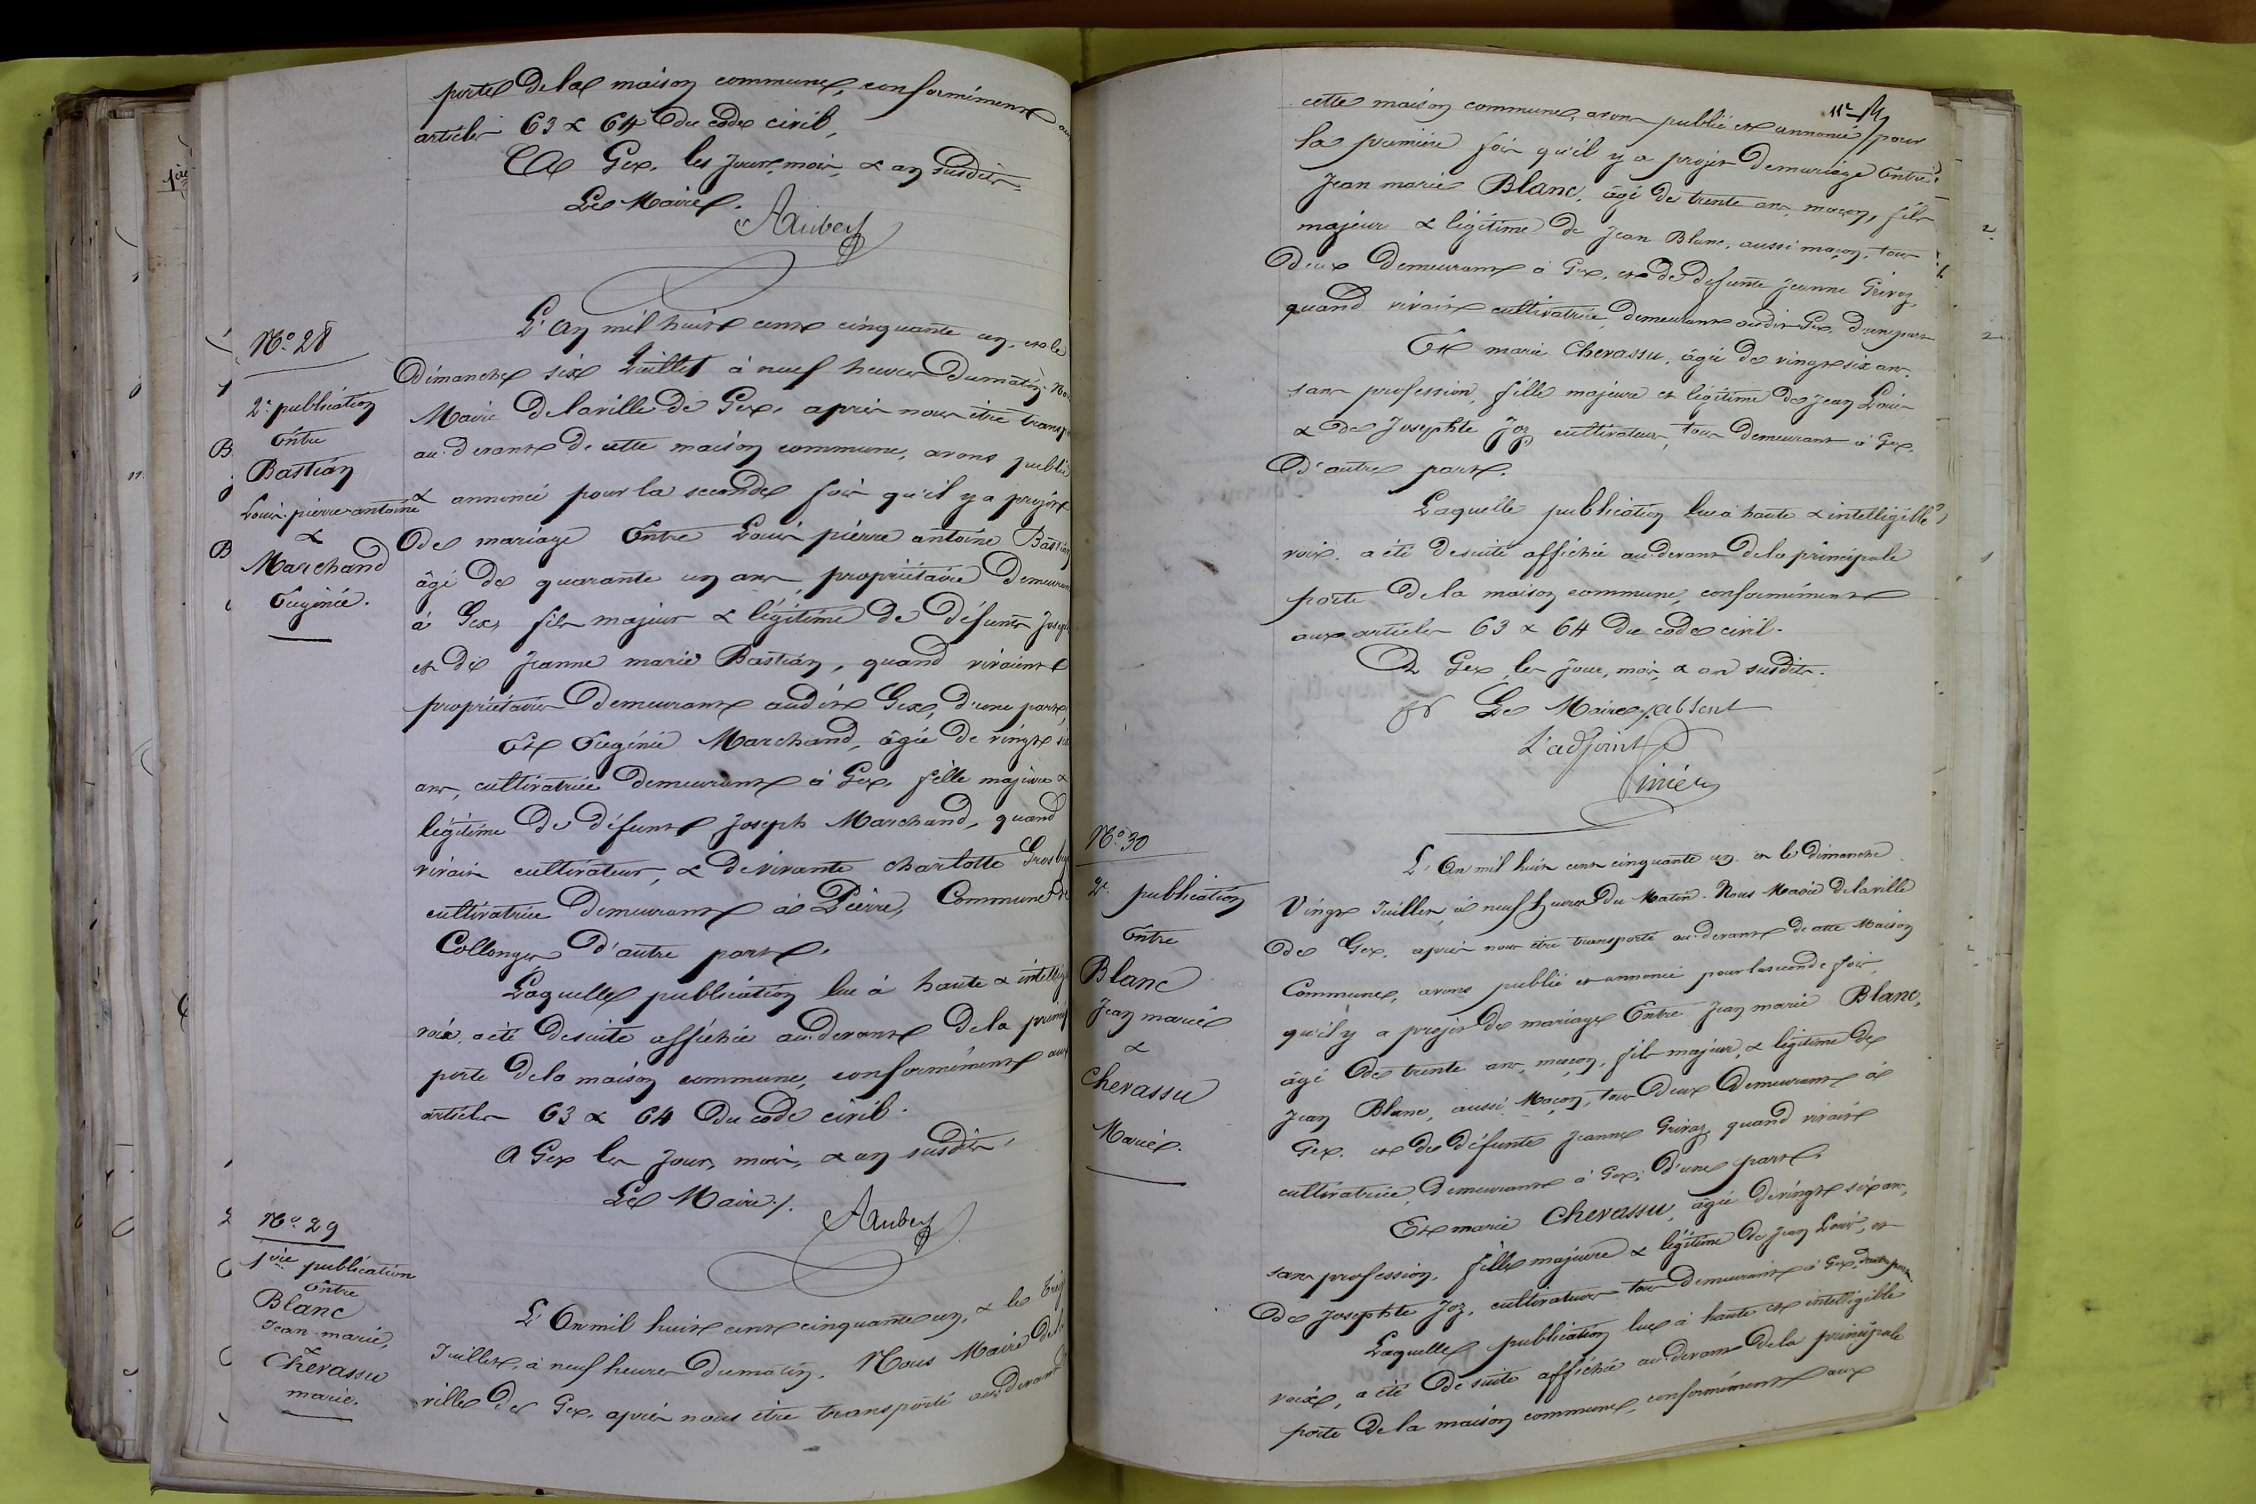 porte de la maison commune, conformément aux
articles 63 & 64 du code civil,
A Gex, les jour, mois, & an susdits.
Le Maire.
Aubert
No. 28
2e publication
Entre
Bastian
Louis pierre antoine
&
Marchand
Eugénie.
L'an mil huit cent cinquante un, et le
dimanche six Juillet à neuf heures du matin. Nous
Maire de la ville de Gex, après nous être transporté
au devant de cette maison commune, avons publié
& annoncé pour la seconde fois qu'il y a projet
de mariage Entre Louis pierre antoine Bastian
âgé de quarante un ans, propriétaire demeurant
à Gex, fils majeur & légitime de défunts Joseph
et de Jeanne marie Bastian, quand vivaient
propriétaires demeurant audit Gex, d'une part,
Et Eugénie Marchand, âgée de vingt six
ans, cultivatrice demeurant à Gex, fille majeure &
légitime de défunt Joseph Marchand, quand
vivait cultivateur, & de vivante charlotte
cultivatrice demeurant à Pierre, Commune de
Collonges d'autre part.
Laquelle publication lue à haute & intelligible
voix, a été desuite affichée au devant de la principale
porte de la maison commune, conformément aux
articles 63 & 64 du code civil.
A Gex les jour, mois, & an susdits,
Le Maire /.
Aubert
No. 29
1ère publication
Entre
Blanc
Jean marie,
&
Chevassu
marie.
L'an mil huit cent cinquante un, & le treize
Juillet, à neuf heures du matin. Nous Maire de la
ville de Gex, après nous être transporté au devant de
cette maison commune, avons publié et annoncé pour
la première fois qu'il y a projet de mariage Entre
Jean marie Blanc, âgé de trente ans, maçon, fils
majeur & légitime de Jean Blanc, aussi maçon, tous
deux demeurant à Gex, et de défunte Jeanne Grivaz,
quand vivait cultivatrice, demeurant audit Gex, d'une part
Et marie Chevassu, âgée de vingt six ans.
sans profession, fille majeure et légitime de Jean Louis
& de Josephte Joz, cultivateurs, tous demeurant à Gex,
d'autre part.
Laquelle publication lue à haute & intelligible
voix, a été desuite affichée au devant de la principale
porte de la maison commune, conformément
aux articles 63 & 64 du code civil.
A Gex, les jour, mois, & an susdits.
pr Le Maire, absent
L'adjoint
No. 30
2e publication
Entre
Blanc
Jean marie
&
Chevassu
Marie.
L'an mil huit cent cinquante un et le dimanche
Vingt Juillet, à neuf heures du Matin. Nous Maire de la ville
de Gex, après nous être transporté au devant de cette Maison
Commune, avons publié et annoncé pour la seconde fois,
qu'il y a projet de mariage Entre Jean marie Blanc,
âgé de trente ans, maçon, fils majeur, & légitime de
Jean Blanc, aussi Maçon, tous deux demeurant à
Gex, et de défunte Jeanne Grivaz, quand vivait
cultivatrice, demeurant à Gex, d'une part.
Et marie Chevassu, âgée de vingt six ans,
sans profession, fille majeure & légitime de Jean Louis, et
de Josephte Joz, cultivateurs tous demeurant à Gex, d'autre part.
Laquelle publication lue à haute et intelligible
voix, a été de suite affichée au devant de la principale
porte de la maison commune, conformément aux